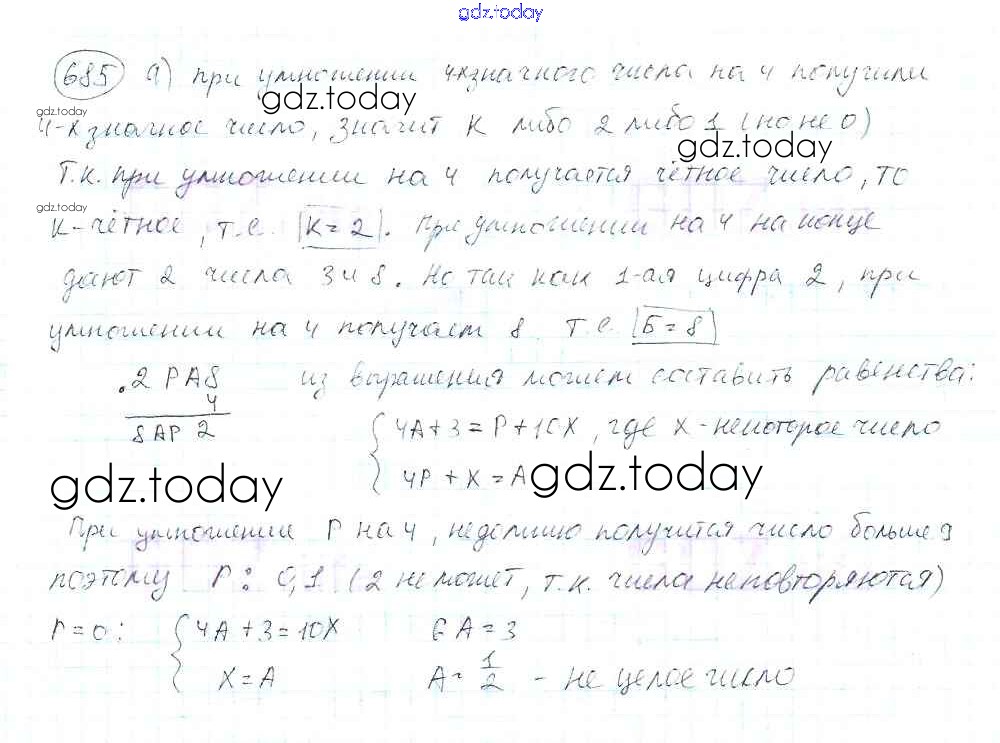 gdz.today
685 а) при умножении 4хзначного числа на 4 получили
gdz.today
gdz.today
4-х значное число, значит К либо 2 либо 1 (но не 0)
gdz.today
Т.к. при умножении на 4 получается чётное число, то
gdz.today
К-чётное, т.е. К=2. При умножении на 4 на конце
дают 2 числа 3 и 8. Но так как 1-ая цифра 2, при
умножении на 4 получаем 8 т.е. Б=8
.2 РА8 из выражения можем составить равенства:
4
8АР 2
4А+3=Р+10Х, где Х-некоторое число
4Р+Х=А
gdz.today gdz.today
При умножении Р на 4, недолжно получится число больше 9
поэтому Р: 0,1 (2 не может, т.к. числа неповторяются)
Р=0: 4А+3=10Х 6А=3
Х=А А=1/2 - не целое число